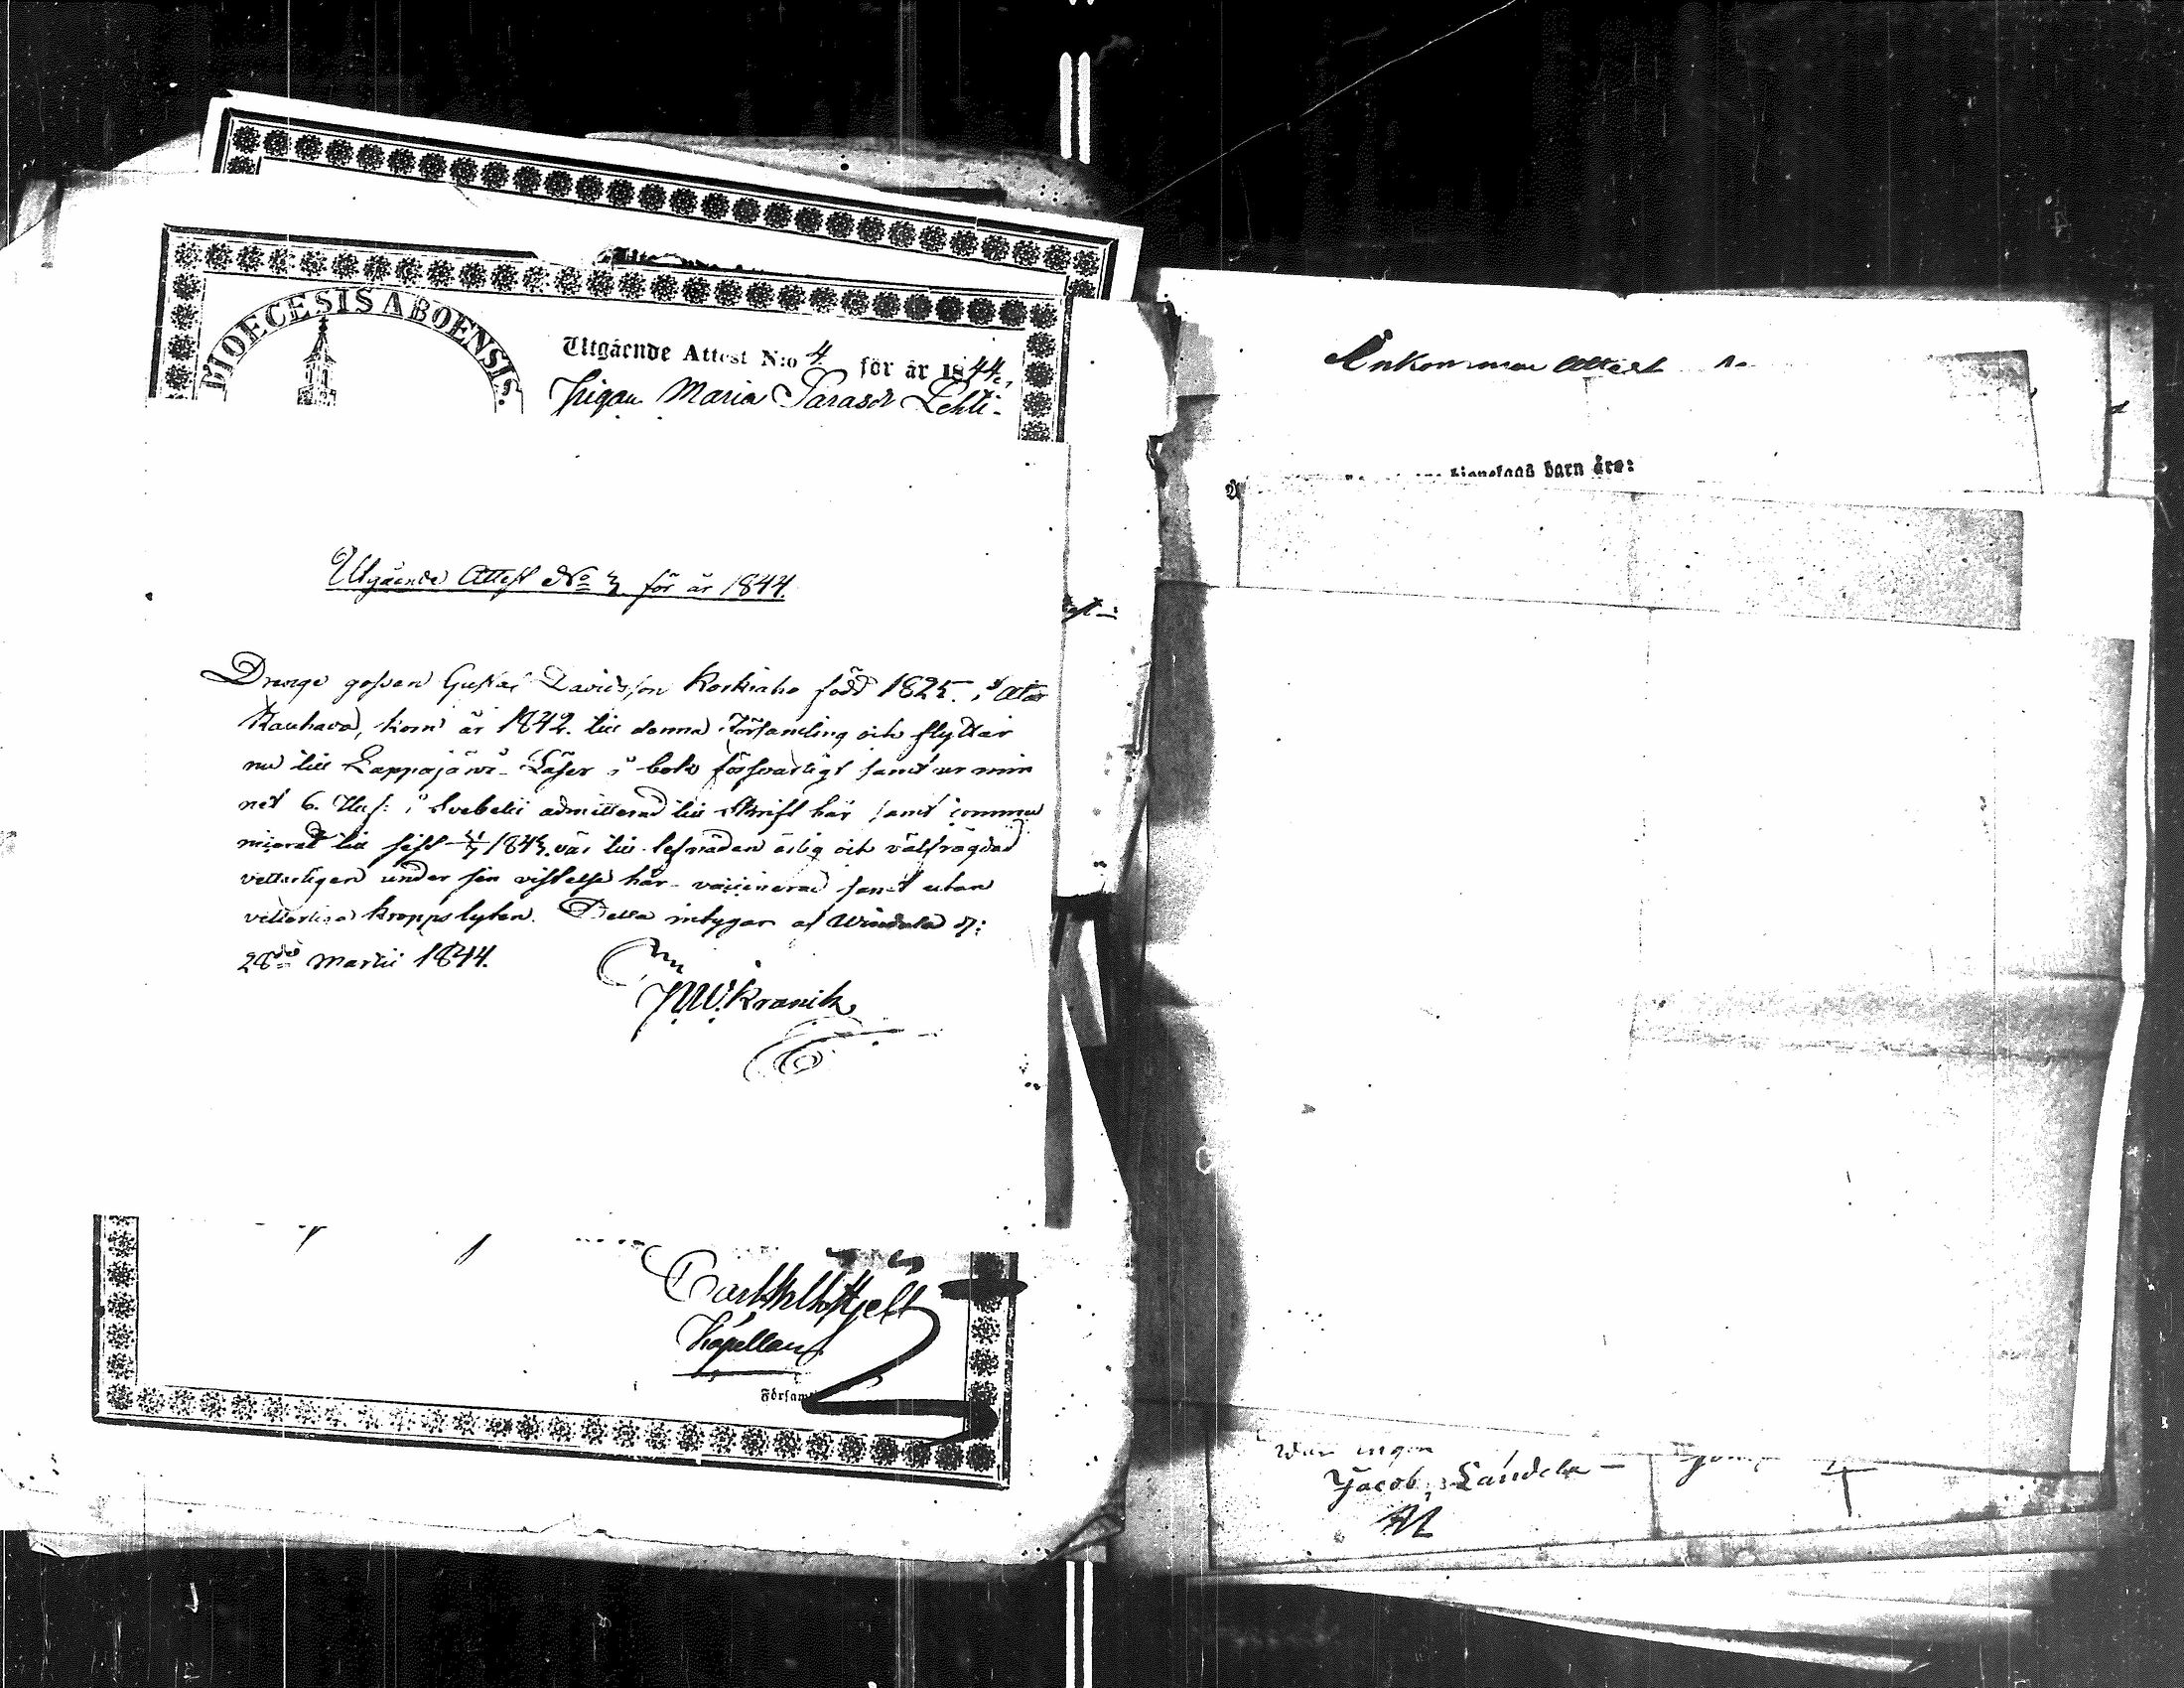 DIOECESIS ABOENSIS.
Utgående Attest N:o 4 för år 1844,
Pigan Maria Lehti-
Utgående Attest No 3 för år 1844.
Drenge gossen Gustaf Davidsson Koskiaho född 1825. i
Kauhava, kom år 1842. till denna Församling och flyttar
nu till Lappajärvi - Läser i bok försvarligt samt ur min
net 6. Huf: i Svebelii admitterad till Skrift här samt commu
nicerat till sist 1843. var till lefnaden ärlig och välfrägdad
vitterligen under sin vistelse här - vaccinerad samt utan
vitterliga kropps lyten. Detta intygar af Windala d:
28de Martii 1844.
Kranck
Hjelt
Kapellan
Försam
Ankommen Attest
barn äro:
ingen
Jacob,